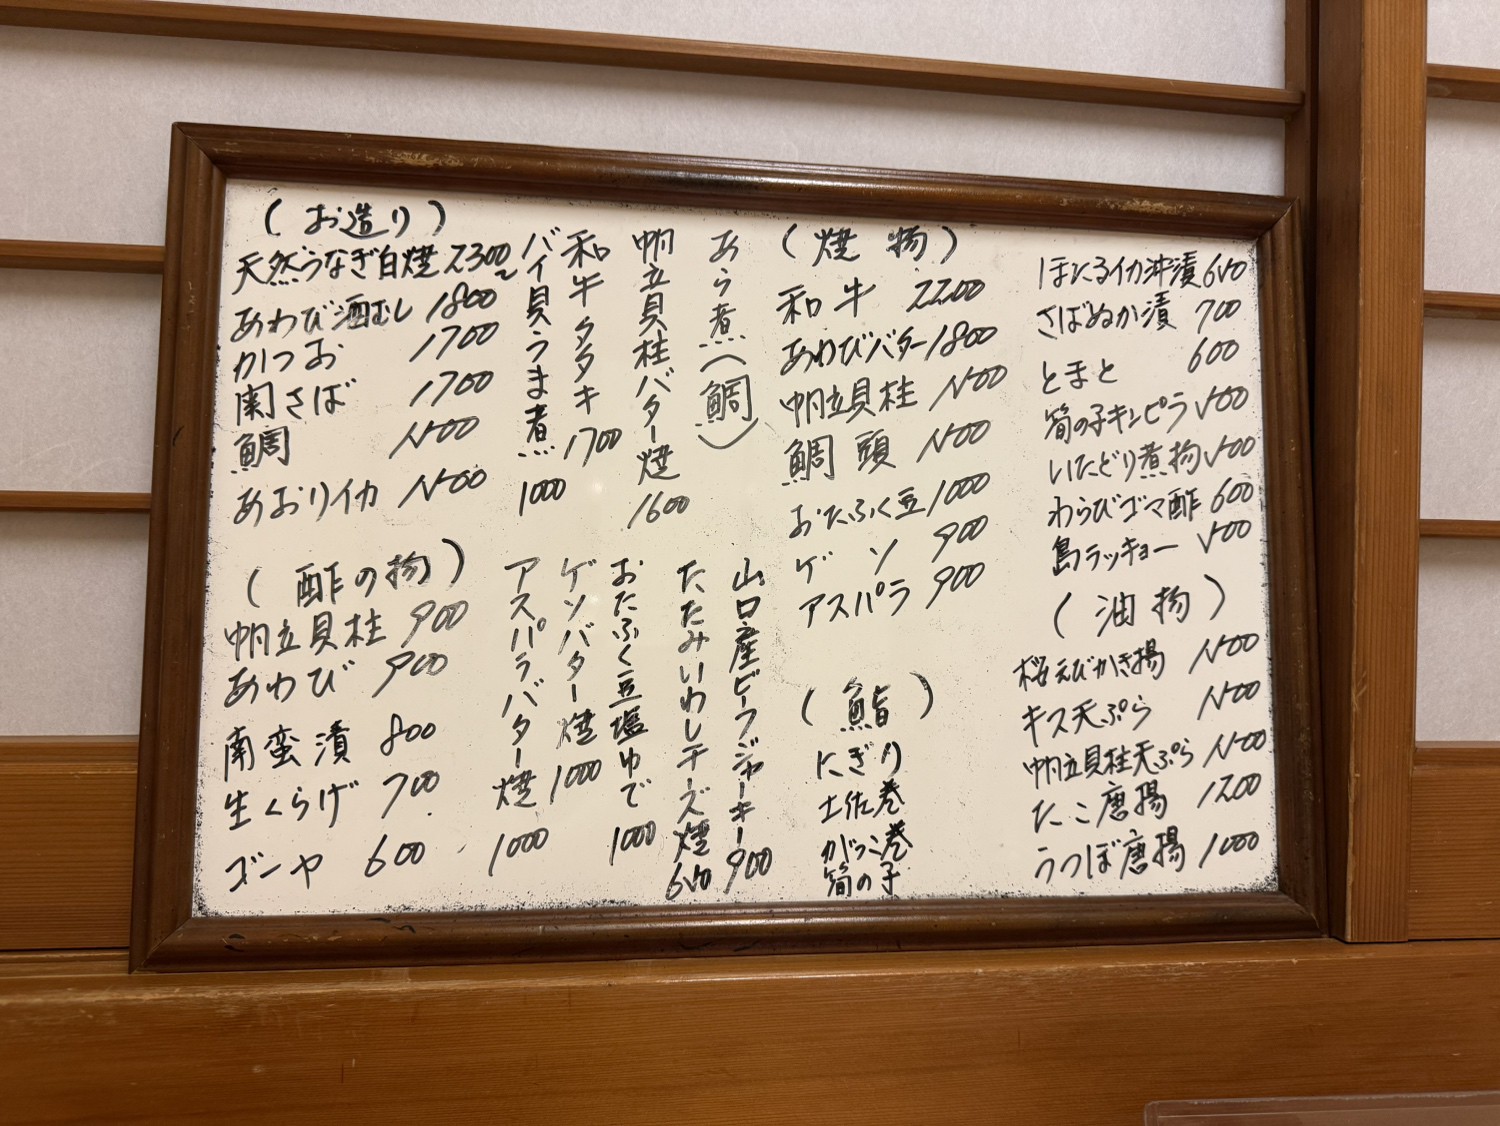 (お造り)
天然うなぎ白焼 2300~
あわび酒むし 1800
かつお 1700
関さば 1700
鯛 1500
あおりイカ 1500
(酢の物)
帆立貝柱 900
あわび 900
南蛮漬 800
生くらげ 700
ゴーヤ 600
バイ貝うま煮 1000
和牛タタキ 1700
帆立貝柱バター焼 1600
あら煮(鯛)
アスパラバター焼 1000
ゲソバター焼 1000
おたふく豆塩ゆで 1000
たたみいわしチーズ焼 650
山口産ビーフジャーキー 900
(焼物)
和牛 2200
あわびバター 1800
帆立貝柱 1500
鯛頭 1500
おたふく豆 1000
ゲソ 900
アスパラ 900
(鮨)
にぎり
土佐巻
がっこ巻
筍の子
ほたるイカ沖漬 650
さばぬか漬 700
とまと 600
筍の子キンピラ 500
いたどり煮物 500
わらびゴマ酢 600
島ラッキョー 500
(油物)
桜えびかき揚 1500
キス天ぷら 1500
帆立貝柱天ぷら 1500
たこ唐揚 1200
うつぼ唐揚 1000